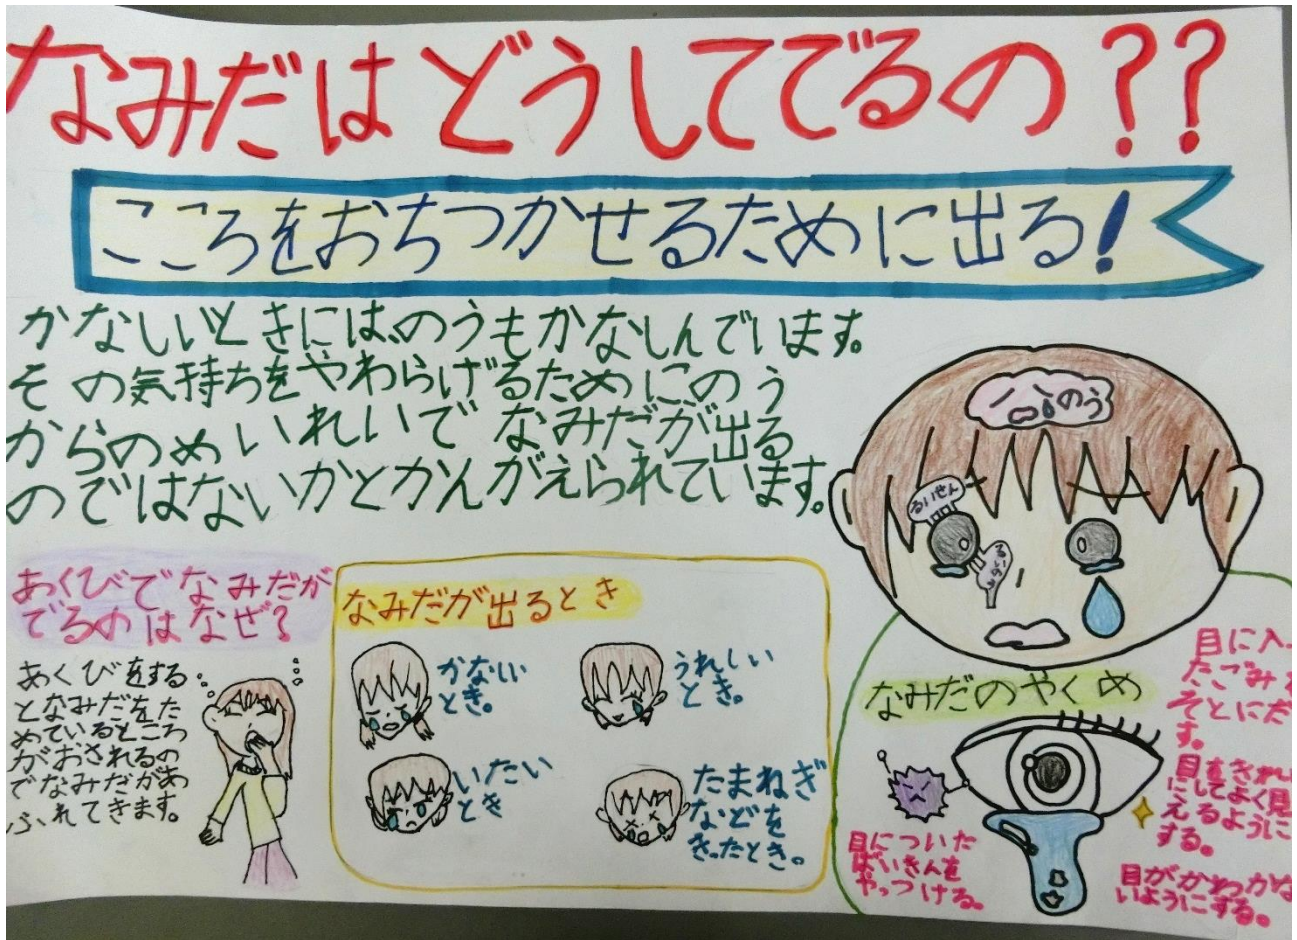 なみだはどうしてでるの??
こころをおちつかせるために出る!
かなしいときには、のうもかなしんでいます。
その気持ちをやわらげるためにのう
からのめいれいでなみだが出る
のではないかとかんがえられています。
のう
るいせん
あくびでなみだが
でるのはなぜ?
あくびをする
となみだをた
めているところ
がおされるの
でなみだがあ
ふれてきます。
なみだが出るとき
かないい
とき。
うれしい
とき。
いたい
とき
たまねぎ
などを
きったとき。
なみだのやくめ
目に入っ
たごみを
そとにだ
す。
目をきれい
にしてよく見
えるように
する。
目についた
ばいきんを
やっつける。
目がかわかな
いようにする。